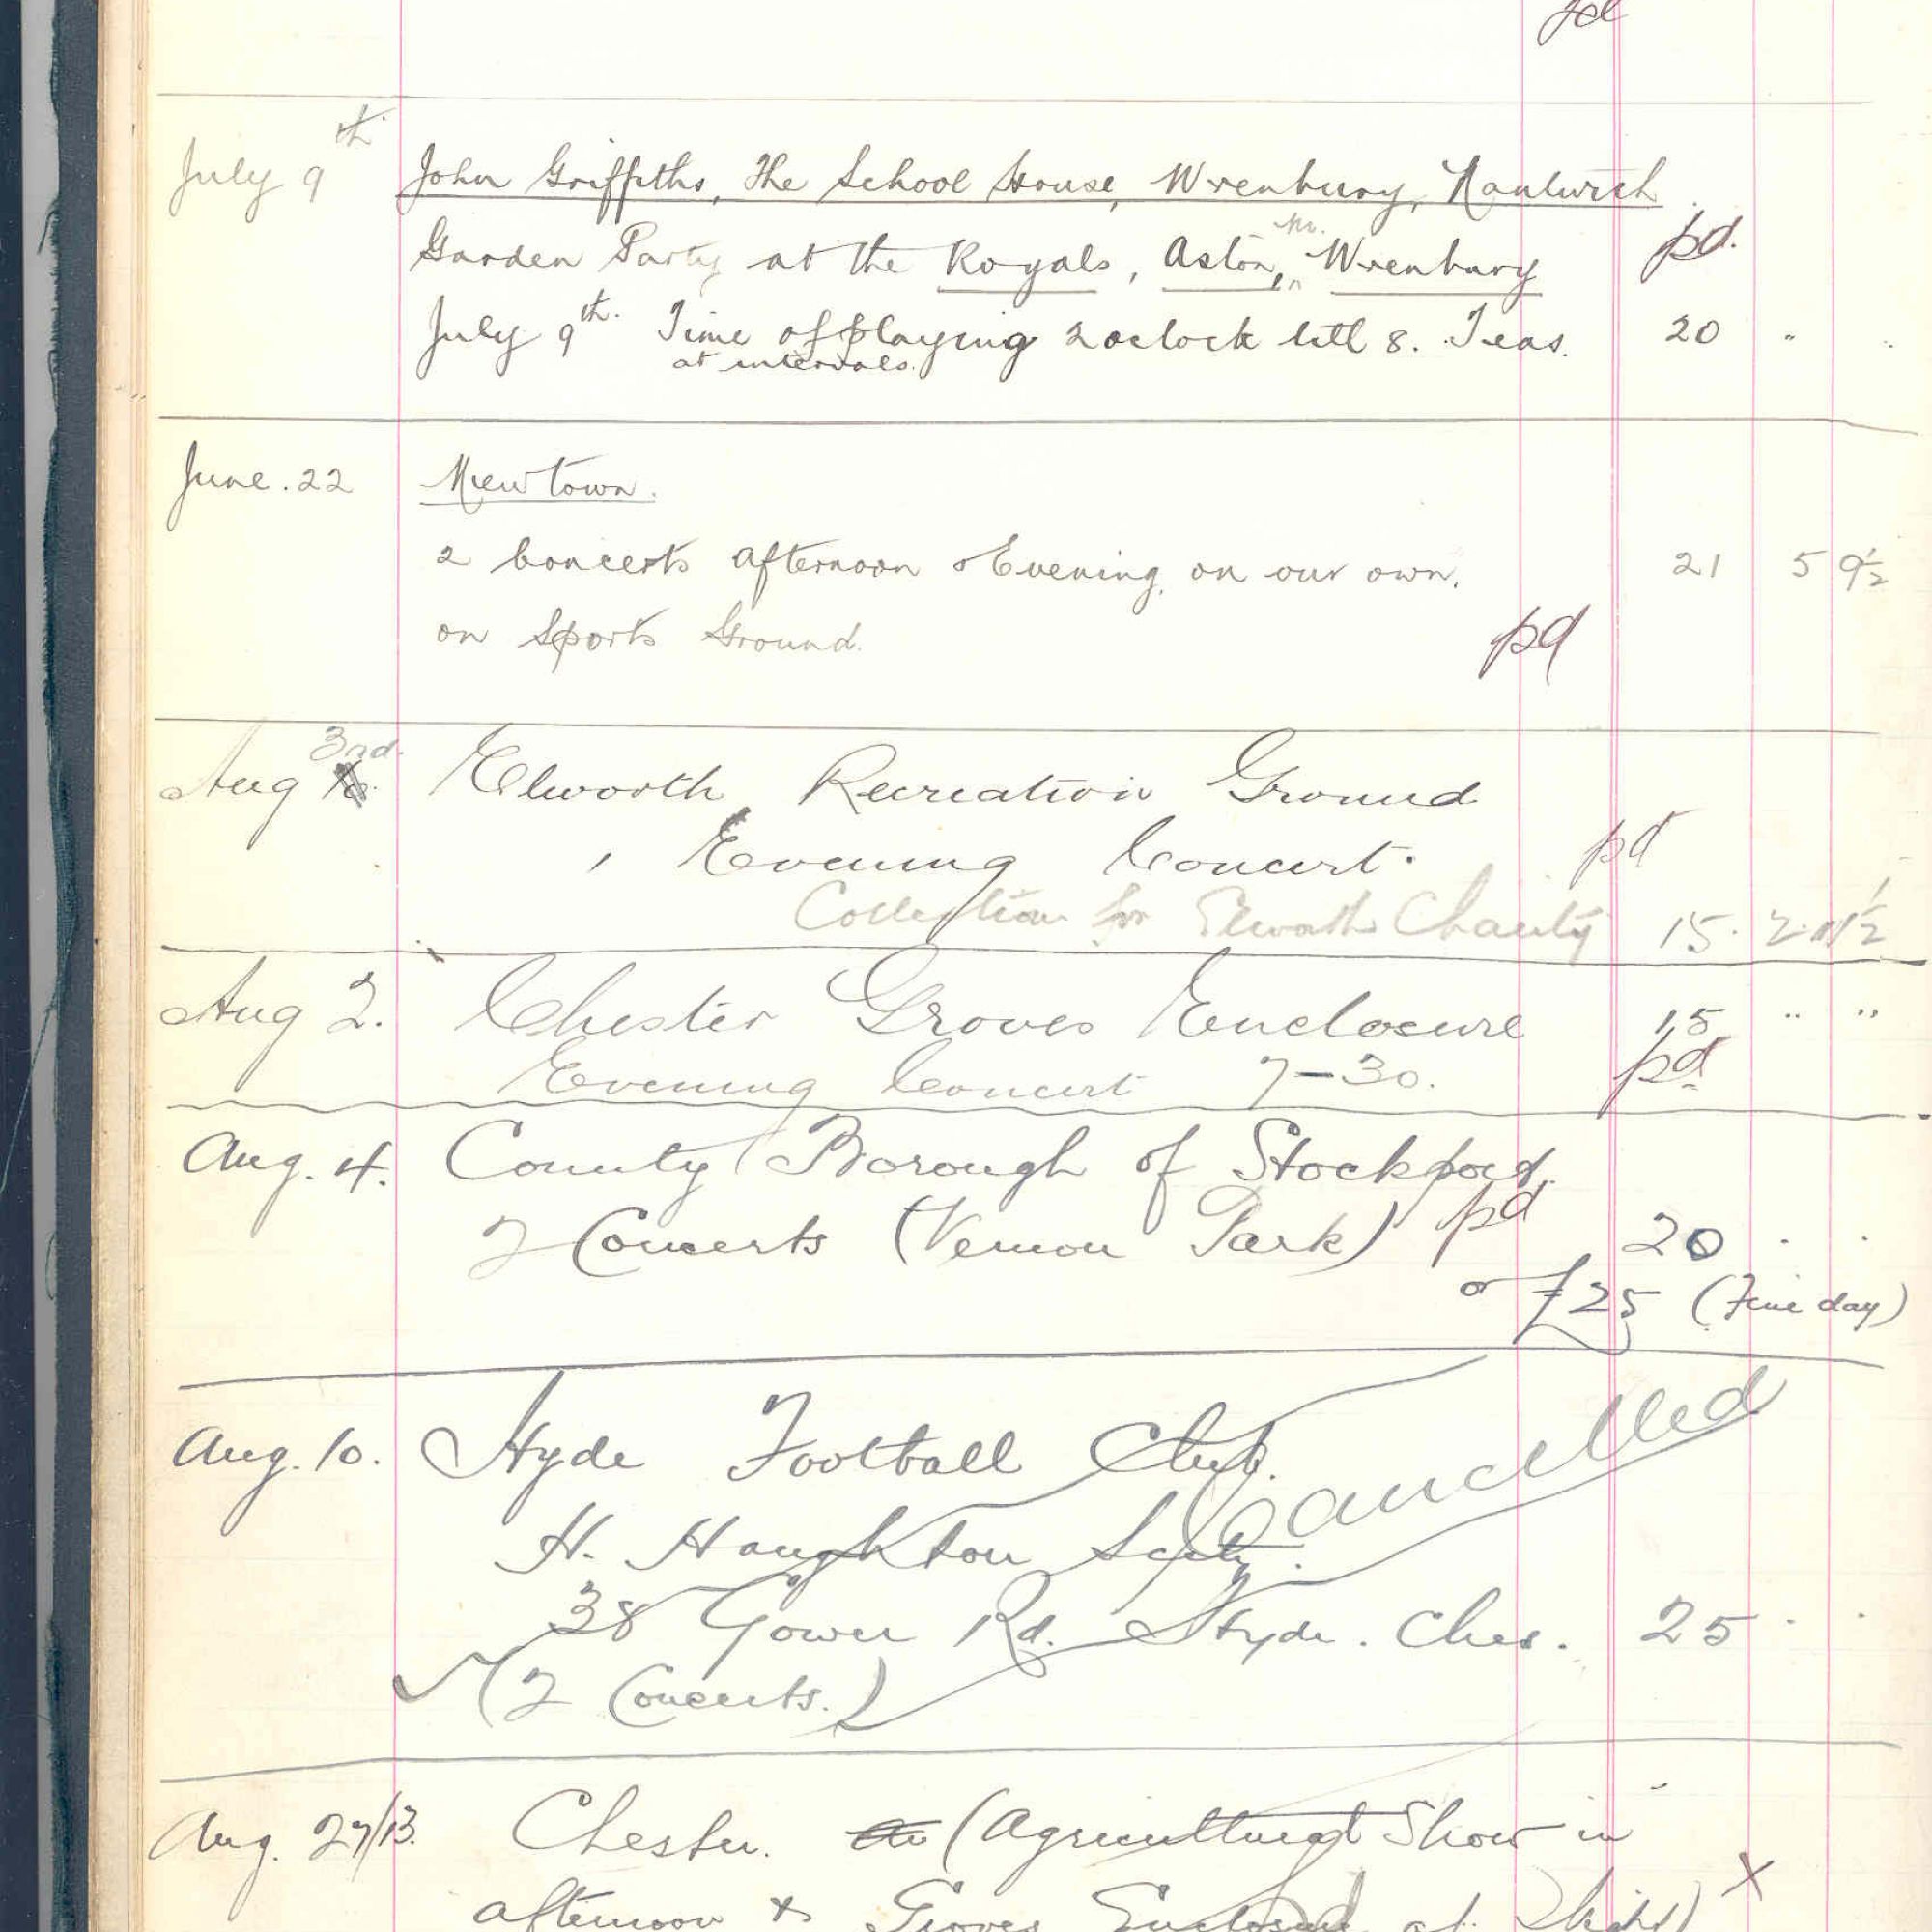 pd
July 9th John Griffiths, The School House, Wrenbury, Nantwich
Garden Party at the Royals, Aston, Nr. Wrenbury pd.
July 9th. Time of playing 2 oclock till 8. Teas. 20 " "
at intervals.
June. 22 Newtown.
2 Concerts Afternoon & Evening, on our own. 21 5 9½
on Sports Ground. pd
Aug 3rd. Elworth Recreation Ground
, Evening Concert. pd
Collection for Elworth Charity 15. 2. 11½
Aug 2. Chester Groves Enclosure 15 " "
Evening Concert 7-30. pd
Aug. 4. County Borough of Stockport.
2 Concerts (Vernon Park) pd 20 . .
or £25 (Fine day)
Aug. 10. Hyde Football Club. Cancelled
H. Haughton Secty.
38 Gower Rd. Hyde. Ches. 25 . .
(2 Concerts.)
Aug. 27/13. Chester. (Agricultural Show in
afternoon & Groves Enclosure at X